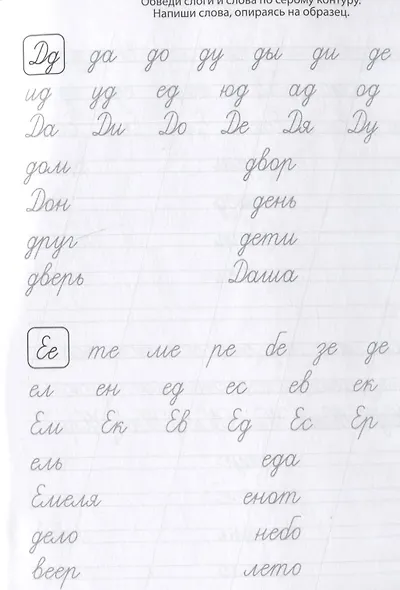 Обведи слоги и слова по серому контуру.
Напиши слова, опираясь на образец.
Дд да до ду ды ди де
ид уд ед юд ад од
Да Ди До Де Дя Ду
дом двор
Дон день
друг дети
дверь Даша
Ее те ме ре бе зе де
ел ен ед ес ев ек
Ем Ек Ев Ед Ес Ер
ель еда
Емеля енот
дело небо
веер лето